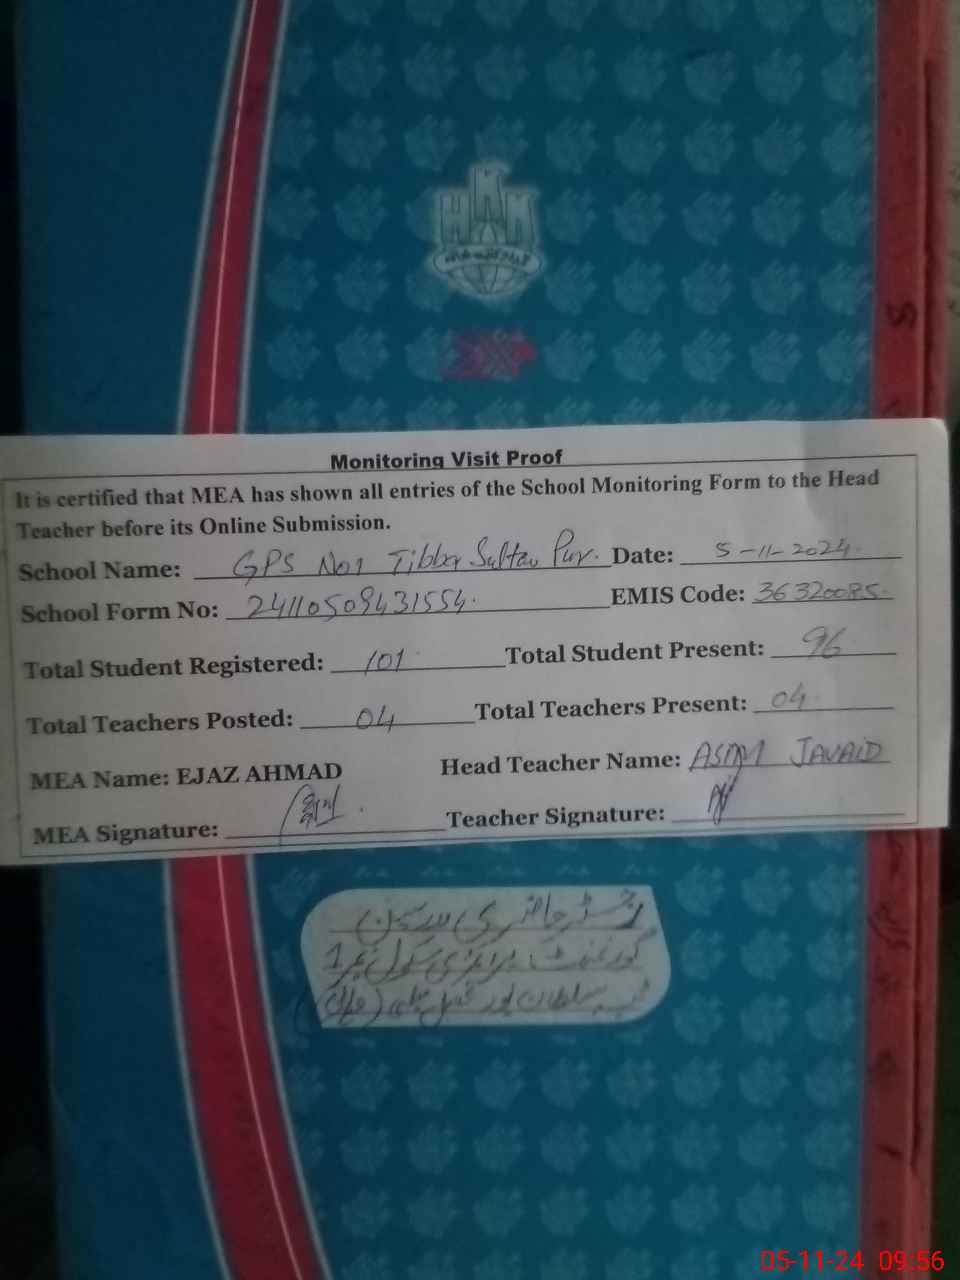 Monitoring Visit Proof
It is certified that MEA has shown all entries of the School Monitoring Form to the Head
Teacher before its Online Submission.
School Name: GPS No1 Tibba Sultan Pur. Date: 5-11-2024.
School Form No: 24110509431554. EMIS Code: 36320085.
Total Student Registered: 101 Total Student Present: 96
Total Teachers Posted: 04 Total Teachers Present: 04
MEA Name: EJAZ AHMAD Head Teacher Name: ASIM JAVAID
MEA Signature: Teacher Signature:
رجسٹر حاضری
گورنمنٹ پرائمری سکول نمبر 1
ٹبہ سلطان پور تحصیل میلسی (وہاڑی)
05-11-24 09:56